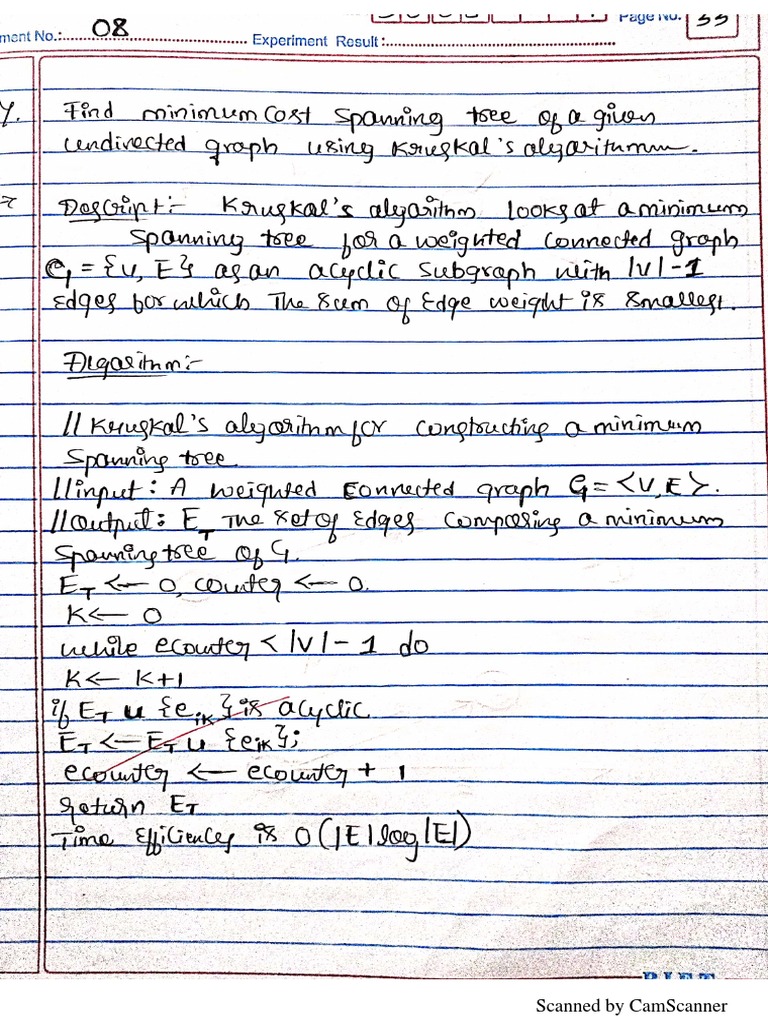 Page No. 33
ment No.: 08 Experiment Result:
Find minimum cost spanning tree of a given
undirected graph using Kruskal's algorithm.
Descript:- Kruskal's algorithm looks at a minimum
spanning tree for a weighted connected graph
G = {V, E} as an acyclic subgraph with |V|-1
edges for which the sum of edge weight is smallest.
Algorithm:-
// Kruskal's algorithm for constructing a minimum
spanning tree
//input: A weighted connected graph G = <V, E>.
//output: ET The set of edges composing a minimum
spanning tree of G.
ET ← 0, counter ← 0.
K ← 0
while ecounter < |V| - 1 do
K ← K+1
if ET ∪ {eiK} is acyclic
ET ← ET ∪ {eiK};
ecounter ← ecounter + 1
return ET
Time efficiences is O(|E|log|E|)
Scanned by CamScanner